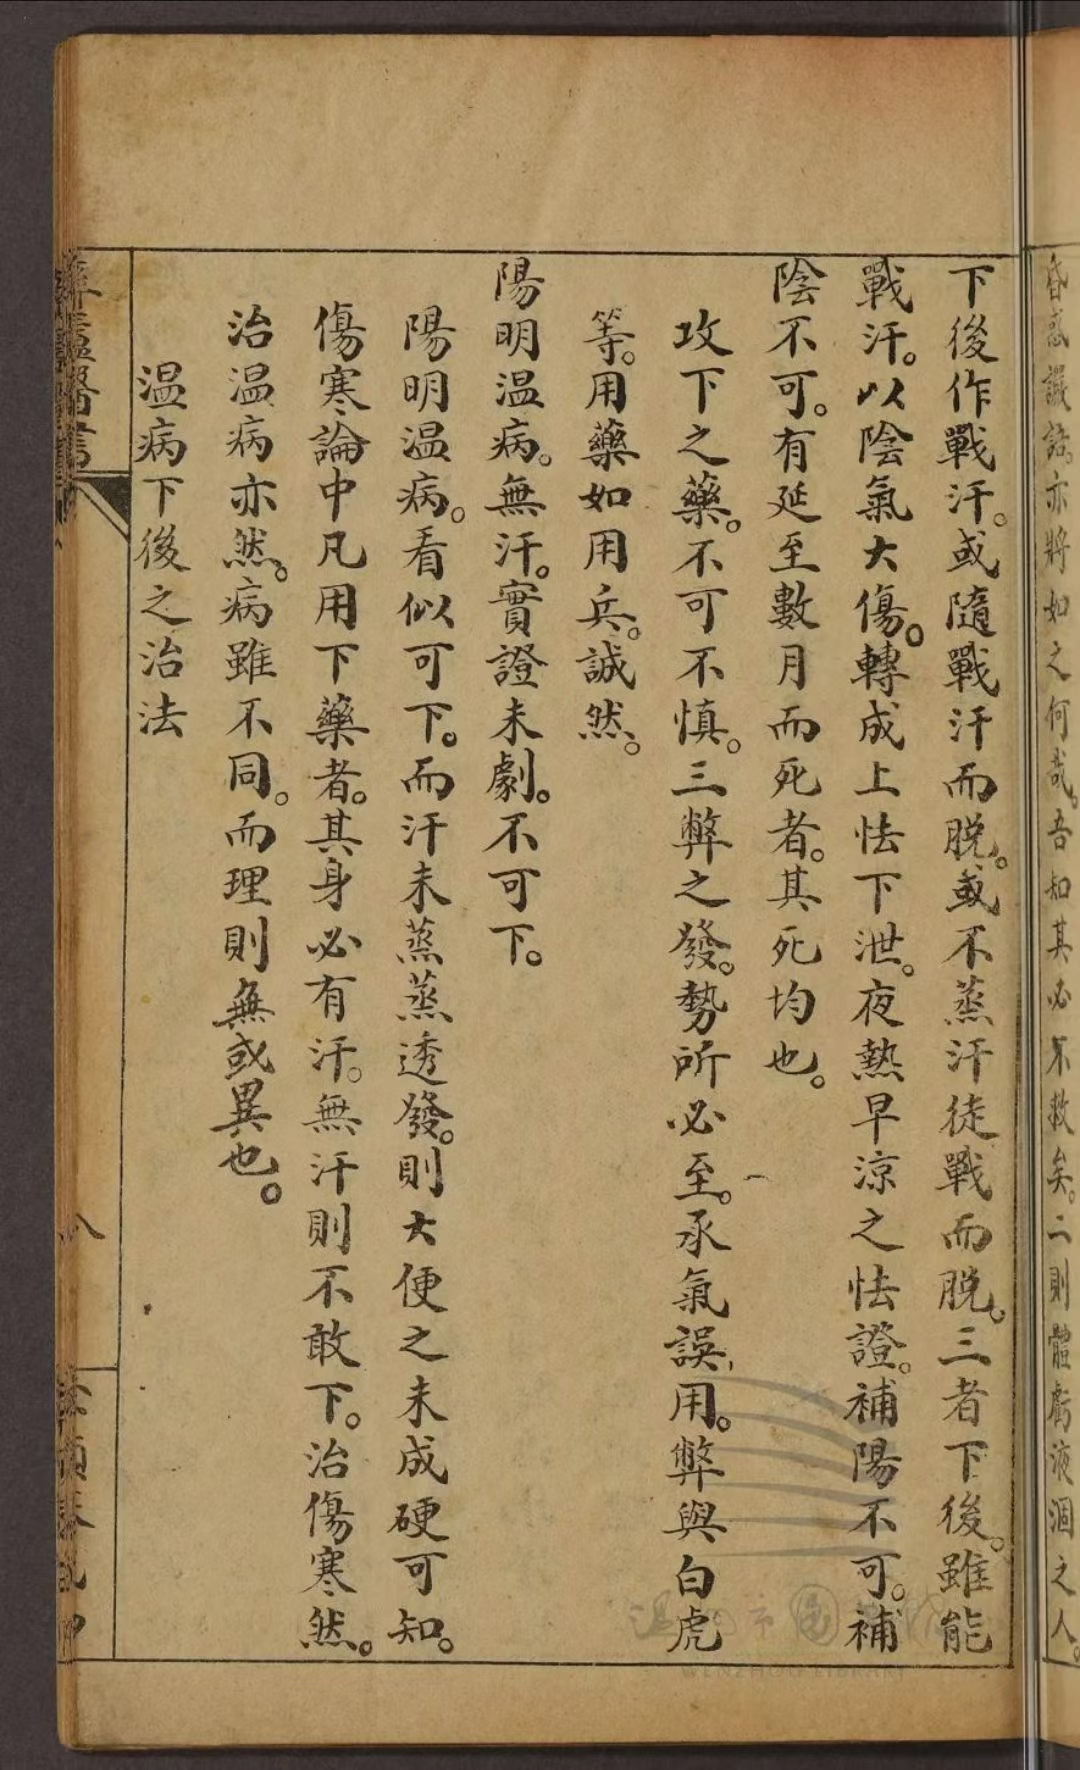 昏惑讝語。亦將如之何哉。吾知其必不救矣。二則體虧液涸之人。
下後作戰汗。或隨戰汗而脫。或不蒸汗徒戰而脫。三者下後。雖能
戰汗。以陰氣大傷。轉成上怯下泄。夜熱早涼之怯證。補陽不可。補
陰不可。有延至數月而死者。其死均也。
攻下之藥。不可不慎。三弊之發。勢所必至。承氣誤用。弊與白虎
等。用藥如用兵。誠然。
陽明温病。無汗。實證未劇。不可下。
陽明温病。看似可下。而汗未蒸蒸透發。則大便之未成硬可知。
傷寒論中凡用下藥者。其身必有汗。無汗則不敢下。治傷寒然。
治温病亦然。病雖不同。而理則無或異也。
温病下後之治法
八
WENZHOU LIBRARY